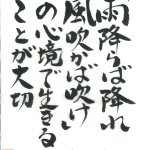 雨降らば降れ
風吹かば吹け」
の心境で生きる
ことが大切